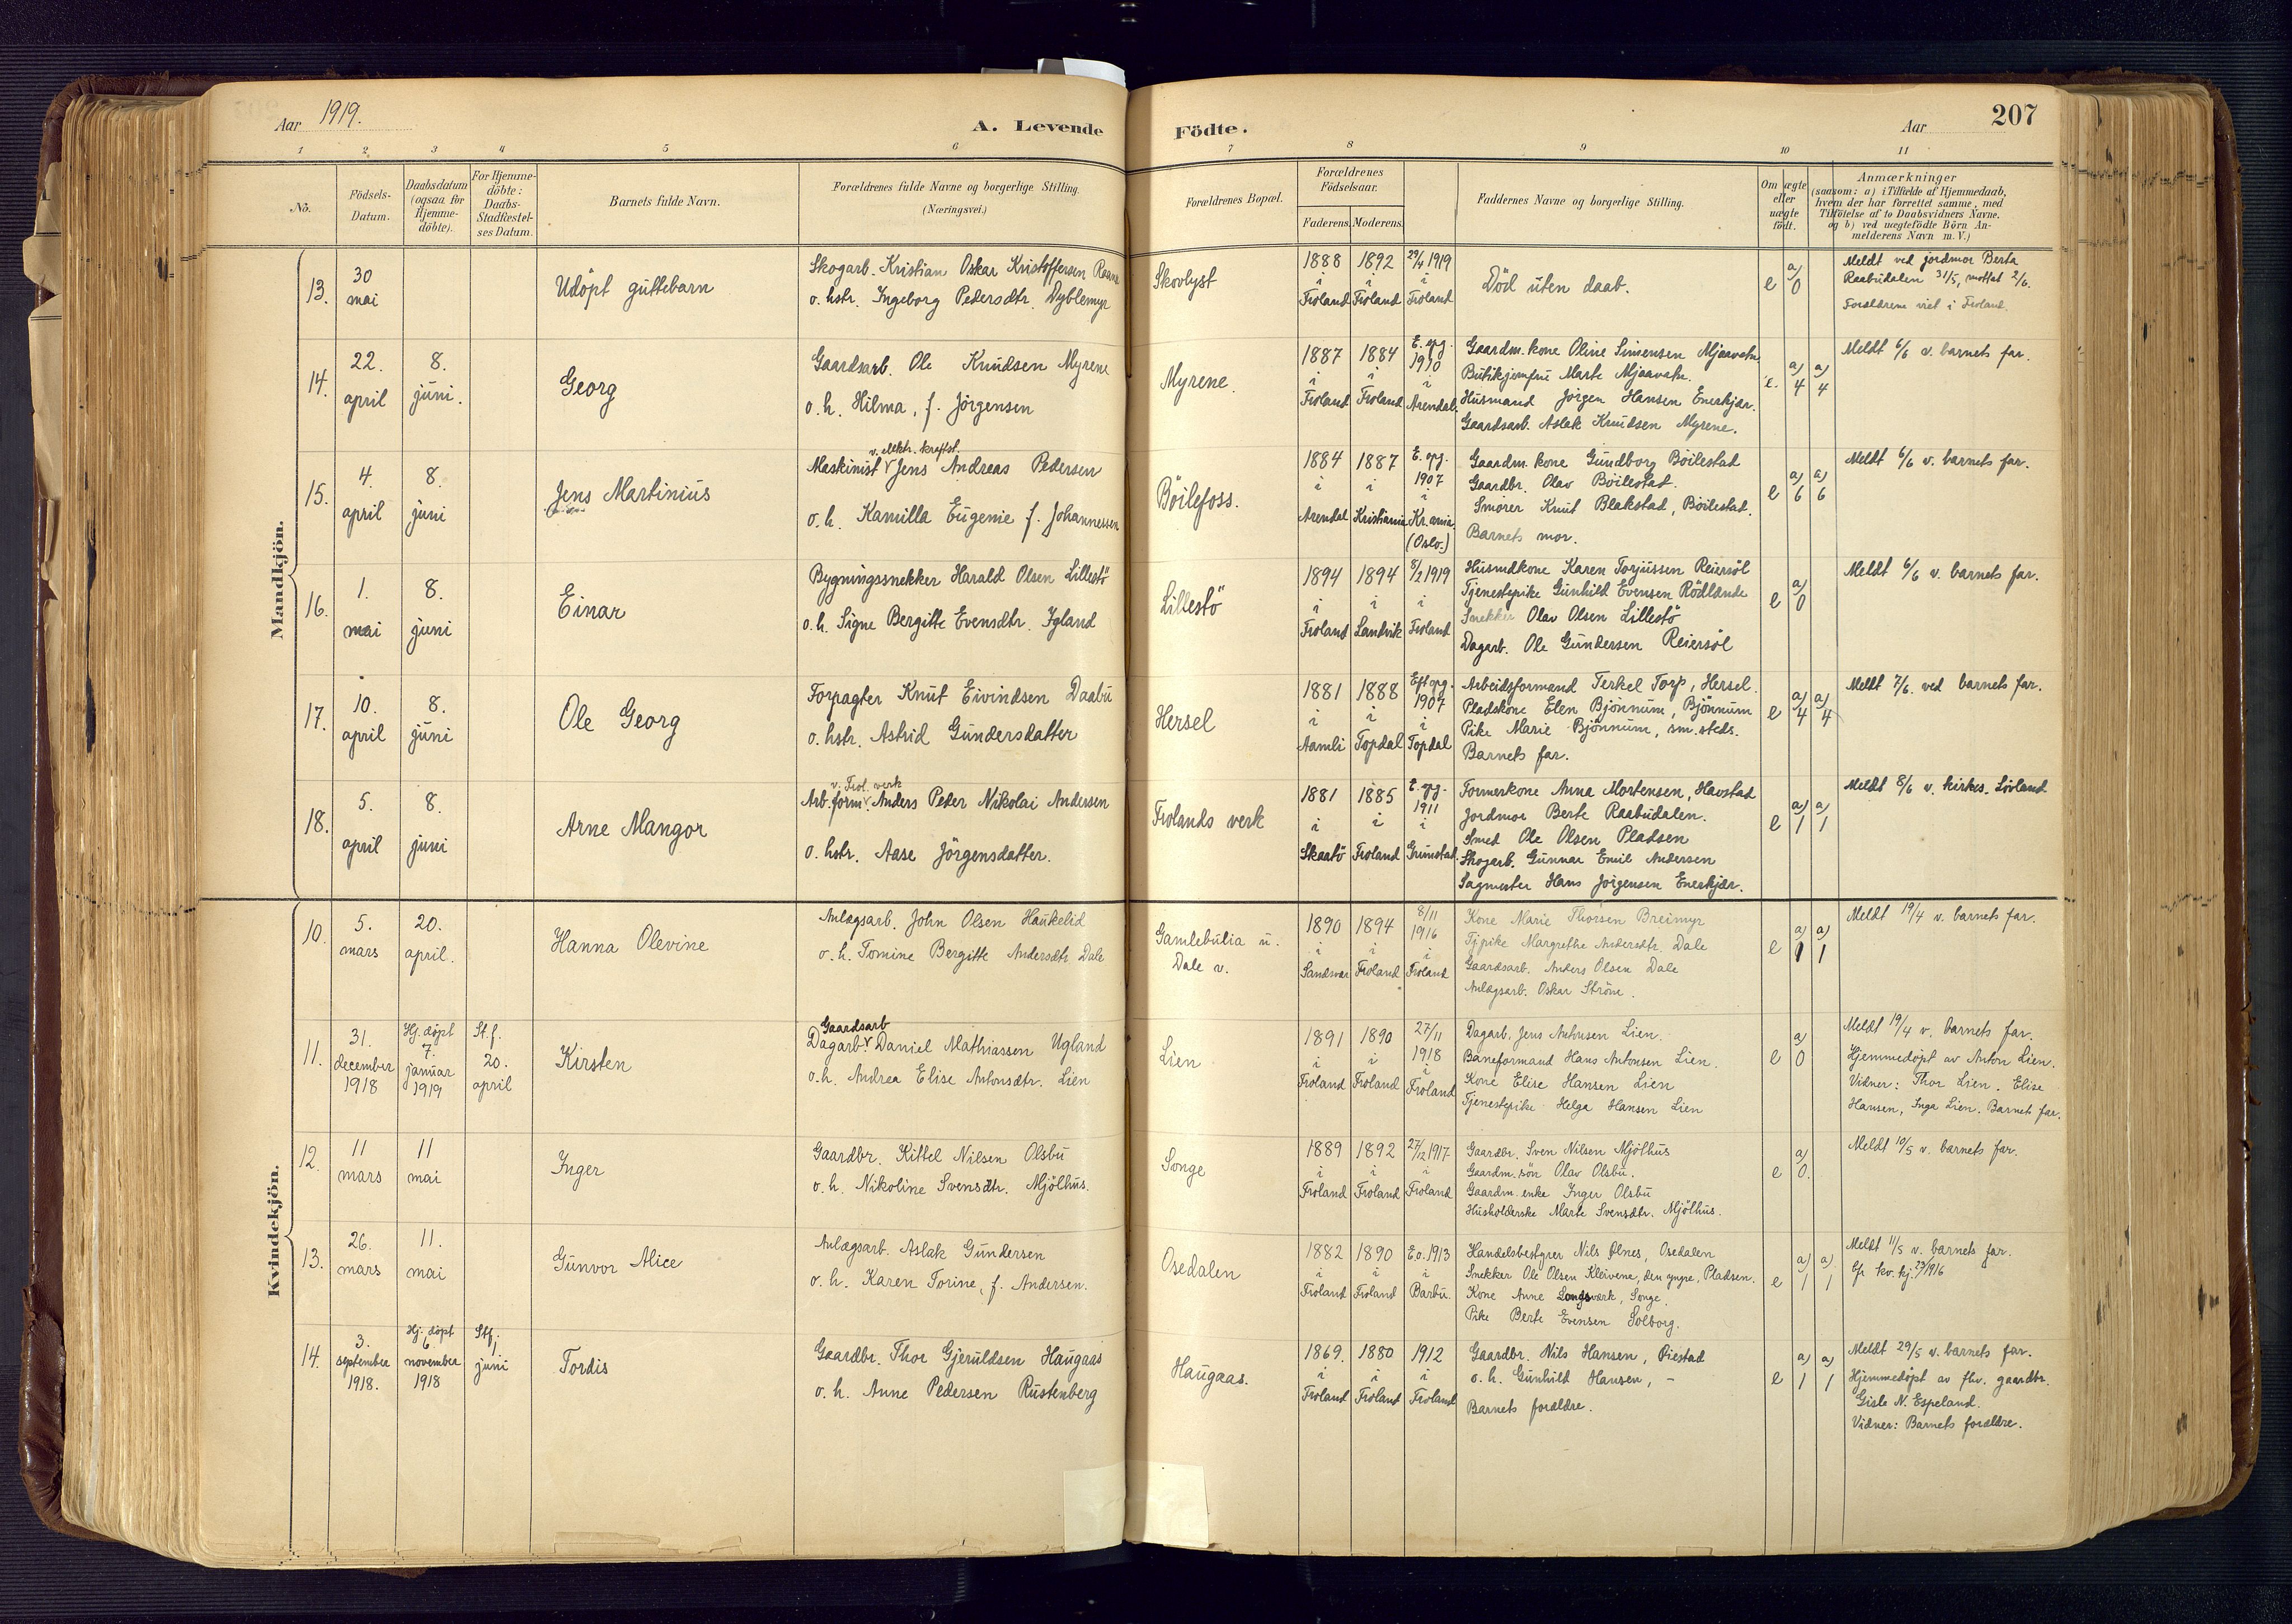 Aar 1919.
A. Levende
Födte.
Aar
207
1 2 3 4 5 6 7 8 9 10 11
No.
Födsels-Datum.
Daabsdatum (ogsaa for Hjemme-döbte).
For Hjemme-döbte: Daabs-Stadfæstel-ses Datum.
Barnets fulde Navn.
Forældrenes fulde Navne og borgerlige Stilling.
(Næringsvei.)
Forældrenes Bopæl.
Forældrenes Födselsaar.
Faderens. Moderens.
Faddernes Navne og borgerlige Stilling.
Om ægte eller uægte födt.
Anmærkninger
(saasom: a) i Tilfælde af Hjemmedaab,
hvem der har forrettet samme, med
Tilföielse af to Daabsvidners Navne,
og b) ved uægtefödte Börn An-
melderens Navn m. V.)
Mandkjön.
13. 30 mai
Udöpt guttebarn
Skogarb. Kristian Oskar Kristoffersen
o. hstr. Ingeborg Pedersdtr. Dyblemyr
Skovlyst
1888 1892 29/4 1919
i i i
Froland Froland Froland
Död uten daab.
e a) 0
Meldt ved jordmor Berta
Raabudalen 31/5, mottat 2/6.
Forældrene viet i Froland.
14. 22. april 8. juni.
Georg
Gaardsarb. Ole Knudsen Myrene
o. h. Hilma, f. Jörgensen
Myrene.
1887 1884 E. opg. 1910
i i i
Froland Froland Arendal.
Gaardm. kone Oline Simensen Mjaavatn.
Butikjomfru Marte Mjaavatn.
Husmand Jörgen Hansen Enerkjær.
Gaardsarb. Aslak Knudsen Myrene.
e. a) 4 a) 4
Meldt 6/6 v. barnets far.
15. 4. april 8. juni
Jens Martinius
v. elektr. kraftst.
Maskinist Jens Andreas Pedersen
o. h. Kamilla Eugenie f. Johannessen
Böilefoss.
1884 1887 E. opg. 1907
i i i
Arendal Kristiania Kr.ania. (Oslo.)
Gaardm. kone Gundborg Böilestad
Gaardbr. Olav Böilestad.
Smörer Knut Blakstad, Böilestad.
Barnets mor.
e a) 6 a) 6
Meldt 6/6 v. barnets far.
16. 1. mai 8. juni
Einar
Bygningssnekker Harald Olsen Lillestö
o. h. Signe Bergitte Evensdtr. Igland
Lillestö
1894 1894 8/2 1919
i i i
Froland Landvik Froland
Husmdkone Karen Torjussen Reiersöl
Tjenestepike Gunhild Evensen Rödlande
Snekker Olav Olsen Lillestö
Dagarb. Ole Gundersen Reiersöl
e a) 0
Meldt 6/6 v. barnets far.
17. 10. april 8. juni
Ole Georg
Forpagter Knut Eivindsen Daabu
o. hstr. Astrid Gundersdatter
Hersel
1881 1888 Eft opg. 1907
i i i
Aamli Topdal Topdal
Arbeidsformand Terkel Torp, Hersel.
Pladskone Elen Bjönnum, Bjönnum
Pike Marie Bjönnum, sm. steds.
Barnets far.
e a) 4 a) 4
Meldt 7/6. ved barnets far.
18. 5. april 8. juni
Arne Mangor
v. Frol. verk
Arb.form. Anders Peder Nikolai Andersen
o. hstr. Aase Jörgensdatter.
Frolands verk
1881 1885 E. opg. 1911
i i i
Skaatö Froland Grimstad.
Formerkone Anna Mortensen, Havstad
Jordmor Berte Raabudalen.
Smed Ole Olsen Pladsen
Skogarb. Gunnar Emil Andersen
Sagmester Hans Jörgensen Enerkjær.
e a) 1 a) 1
Meldt 8/6 v. kirkes. Lövland
Kvindekjön.
10. 5. mars 20. april.
Hanna Olevine
Anlægsarb. John Olsen Haukelid
o. h. Tomine Bergitte Andersdtr. Dale
Gamlebulia u.
Dale v.
1890 1894 8/11 1916
i i i
Sandsvær Froland Froland
Kone Marie Thorsen Breimyr
Tjpike Margrethe Andersdtr. Dale
Gaardsarb. Anders Olsen Dale
Anlægsarb. Oskar Ström.
e a) 1 a) 1
Meldt 19/4 v. barnets far.
11. 31. december 1918
Hj. döpt 7. januar 1919
St.f. 20. april
Kirsten
Gaardsarb
Dagarb. Daniel Mathiassen Ugland
o.h. Andrea Elise Antonsdtr. Lien
Lien
1891 1890 27/11 1918
i i i
Froland Froland Froland
Dagarb. Jens Antonsen Lien.
Baneformand Hans Antonsen Lien.
Kone Elise Hansen Lien
Tjenestepike Helga Hansen Lien
e a) 0
Meldt 19/4 v. barnets far.
Hjemmedöpt av Anton Lien.
Vidner: Thor Lien. Elise
Hansen, Inga Lien. Barnets far.
12. 11 mars 11 mai
Inger
Gaardbr. Kittel Nilsen Olsbu
o. h. Nikoline Svensdtr. Mjölhus.
Songe
1889 1892 27/12 1917
i i i
Froland Froland Froland
Gaardbr. Sven Nilsen Mjölhus
Gaardm. sön Olav Olsbu.
Gaardm. enke Inger Olsbu
Husholderske Marte Svensdtr. Mjölhus.
e a) 0.
Meldt 10/5 v. barnets far.
13. 26. mars 11. mai
Gunvor Alice
Anlægsarb. Aslak Gundersen
o. h. Karen Torine, f. Andersen.
Osedalen
1882 1890 E.o. 1913
i i i
Froland Froland Barbu.
Handelsbestyrer Nils Ølnes, Osedalen
Snekker Ole Olsen Kleivene, den yngre, Pladsen.
Kone Anne Songsværk, Songe.
Pike Berte Evensen Solborg.
e a) 1 a) 1
Meldt 11/5 v. barnets far.
Cfr. kv. kj. 23/1916
14. 3. september 1918.
Hj. döpt 6. november 1918
Stf. 1. juni
Tordis
Gaardbr. Thor Gjeruldsen Haugaas
o. h. Anne Pedersen Rustenberg
Haugaas.
1869. 1880 1912
i i i
Froland Froland Froland
Gaardbr. Nils Hansen, Piestad
o. h. Gunhild Hansen, –
Barnets forældre.
e a) 1 a) 1
Meldt 29/5 v. barnets far.
Hjemmedöpt av fhv. gaardbr.
Gisle N. Espeland.
Vidner: Barnets forældre.